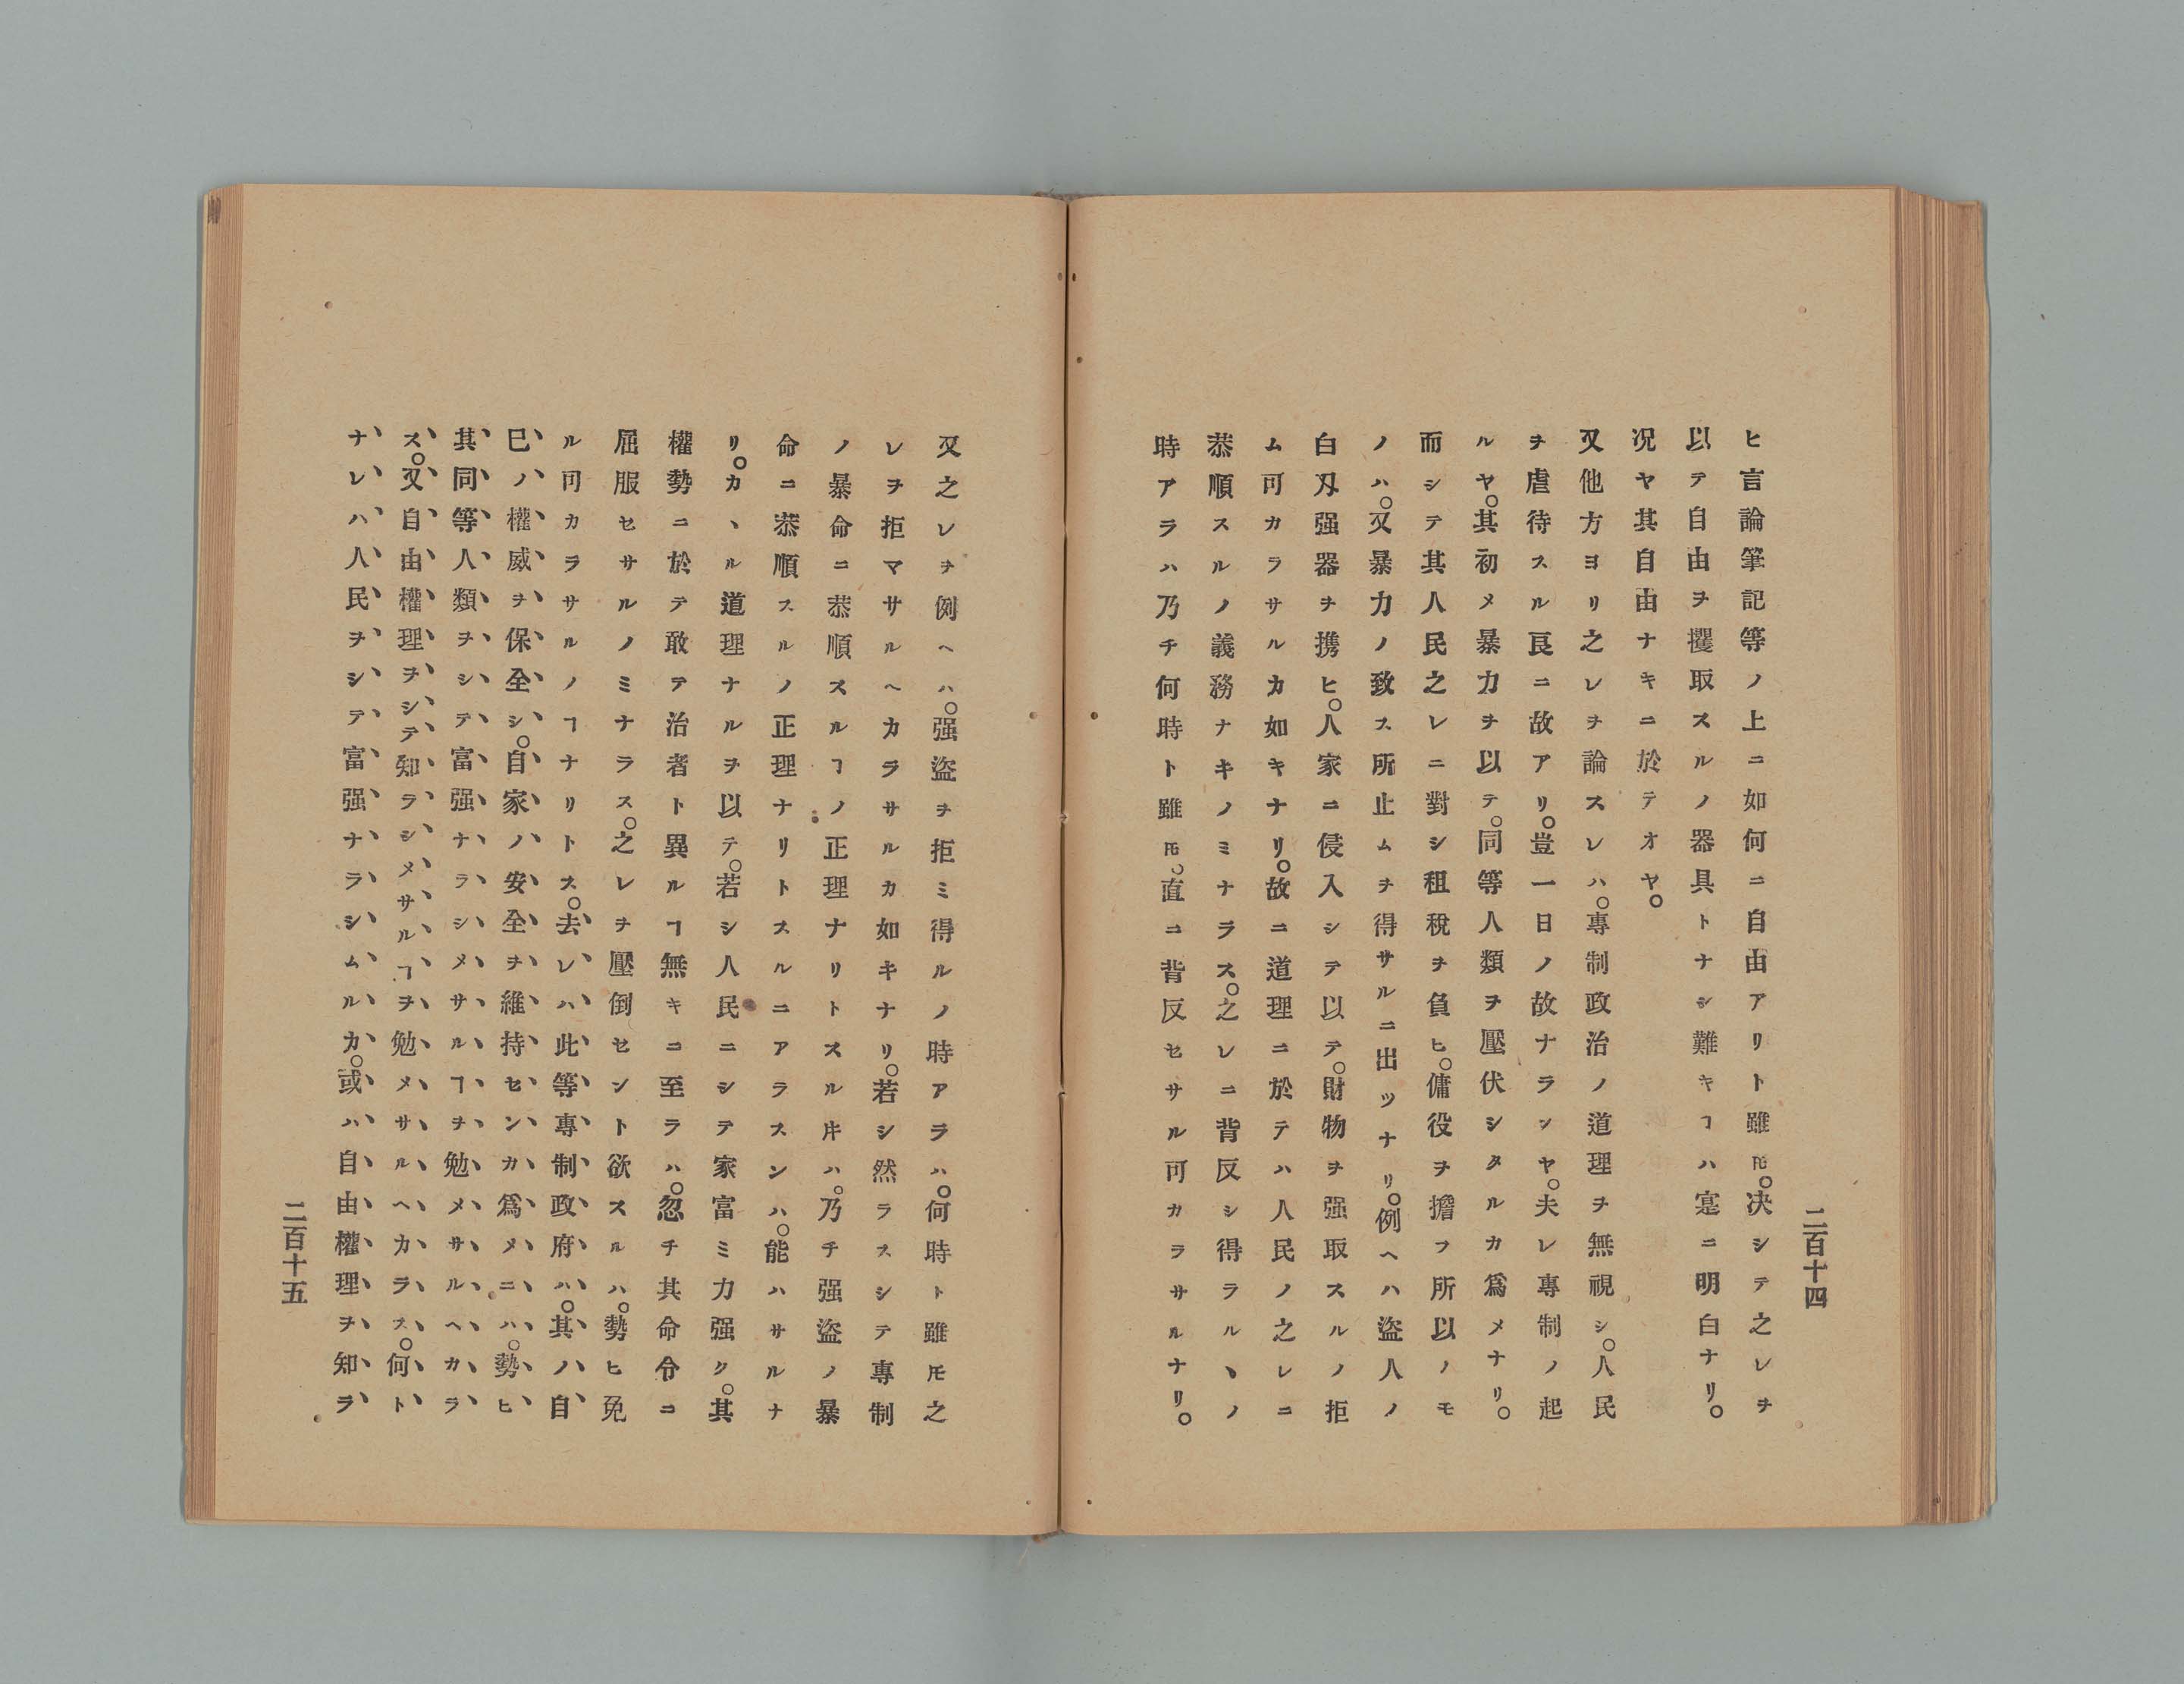 二百十四
ヒ言論筆記等ノ上ニ如何ニ自由アリト雖𪜈。决シテ之レヲ
以テ自由ヲ攫取スルノ器具トナシ難キヿハ寔ニ明白ナリ。
况ヤ其自由ナキニ於テオヤ。
又他方ヨリ之レヲ論スレハ。專制政治ノ道理ヲ無視シ。人民
ヲ虐待スル莨ニ故アリ。豈一日ノ故ナランヤ。夫レ專制ノ起
ルヤ。其初メ暴力ヲ以テ。同等人類ヲ壓伏シタルカ爲メナリ。
而シテ其人民之レニ對シ租稅ヲ負ヒ。傭役ヲ擔フ所以ノモ
ノハ。又暴力ノ致ス所止ムヲ得サルニ出ツナリ。例ヘハ盜人ノ
白刄强器ヲ携ヒ。人家ニ侵入シテ以テ。財物ヲ强取スルノ拒
ム可カラサルカ如キナリ。故ニ道理ニ於テハ人民ノ之レニ
恭順スルノ義務ナキノミナラス。之レニ背反シ得ラルヽノ
時アラハ乃チ何時ト雖𪜈。直ニ背反セサル可カラサルナリ。
又之レヲ例ヘハ。强盜ヲ拒ミ得ルノ時アラハ。何時ト雖𪜈之
レヲ拒マサルヘカラサルカ如キナリ。若シ然ラスシテ專制
ノ暴命ニ恭順スルヿノ正理ナリトスル𪜈ハ。乃チ强盜ノ暴
命ニ恭順スルノ正理ナリトスルニアラスンハ。能ハサルナ
リ。カヽル道理ナルヲ以テ。若シ人民ニシテ家富ミ力强ク。其
權勢ニ於テ敢テ治者ト異ルヿ無キニ至ラハ。忽チ其命令ニ
屈服セサルノミナラス。之レヲ壓倒セント欲スルハ。勢ヒ免
ル可カラサルノヿナリトス。去レハ此等專制政府ハ。其ノ自
巳ノ權威ヲ保全シ。自家ノ安全ヲ維持センカ爲メニハ。勢ヒ
其同等人類ヲシテ富强ナラシメサルヿヲ勉メサルヘカラ
ス。又自由權理ヲシテ知ラシメサルヿヲ勉メサルヘカラス。何ト
ナレハ人民ヲシテ富强ナラシムルカ。或ハ自由權理ヲ知ラ
二百十五